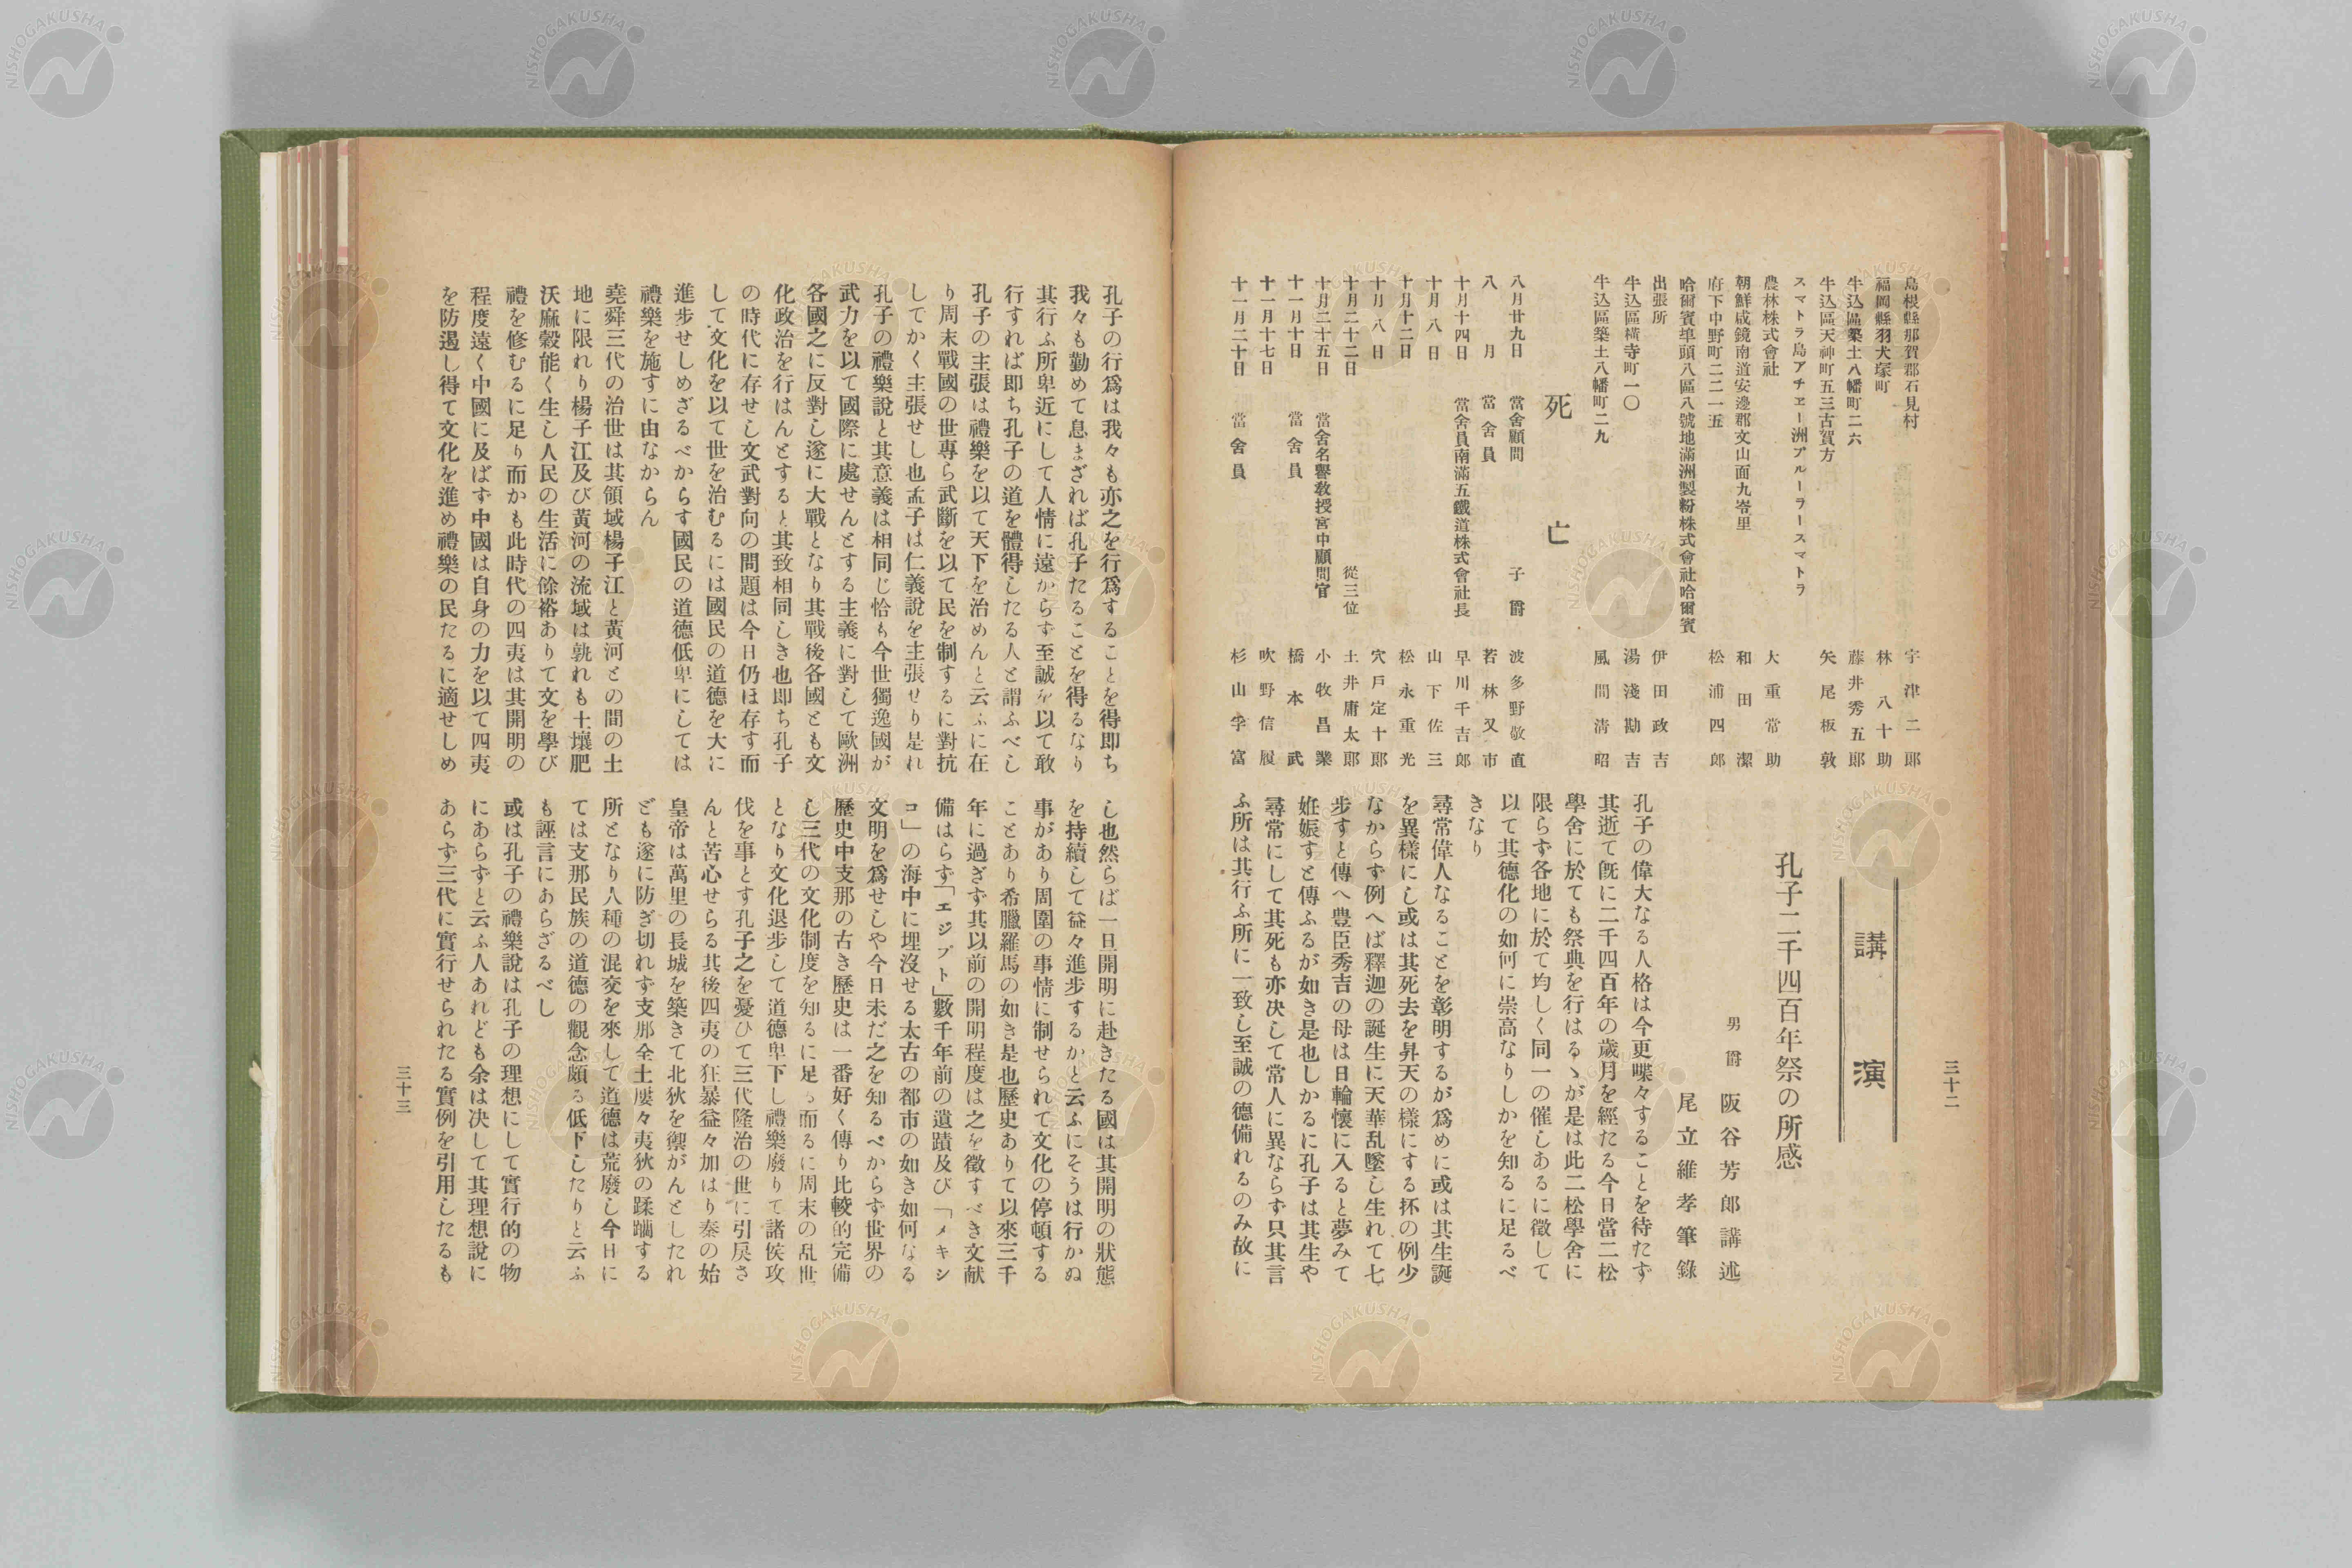 三十二
島根縣那賀郡石見村　宇津二郎
福岡縣羽犬塚町　林八十助
牛込區築土八幡町二六　藤井秀五郎
牛込區天神町五三古賀方　矢尾板敦
スマトラ島アチエー洲プルーラースマトラ
農林株式會社　大重常助
朝鮮咸鏡南道安邊郡文山面九岺里　和田潔
府下中野町二二一五　松浦四郎
哈爾賓埠頭八區八號地滿洲製粉株式會社哈爾賓
出張所　伊田政吉
牛込區橫寺町一〇　湯淺勘吉
牛込區築土八幡町二九　風間清昭
死亡
八月廿九日　當舍顧問　子爵　波多野敬直
八月　當舍員　若林又市
十月十四日　當舍員南滿五鐵道株式會社長　早川千吉郎
十月八日　山下佐三
十月十二日　松永重光
十月八日　穴戶定十郎
十月二十二日　從三位　土井庸太郎
十月二十五日　當舍名譽敎授宮中顧問官　小牧昌業
十一月十日　當舍員　橋本武
十一月十七日　吹野信履
十一月二十日　當舍員　杉山孚富
講演
孔子二千四百年祭の所感
男爵　阪谷芳郎講述
尾立維孝筆錄
孔子の偉大なる人格は今更喋々することを待たず
其逝て旣に二千四百年の歲月を經たる今日當二松
學舍に於ても祭典を行はるゝが是は此二松學舍に
限らず各地に於て均しく同一の催しあるに徵して
以て其德化の如何に崇高なりしかを知るに足るべ
きなり
尋常偉人なることを彰明するが爲めに或は其生誕
を異樣にし或は其死去を昇天の樣にする抔の例少
なからず例へば釋迦の誕生に天華乱墜し生れて七
步すと傳へ豊臣秀吉の母は日輪懷に入ると夢みて
姙娠すと傳ふるが如き是也しかるに孔子は其生や
尋常にして其死も亦決して常人に異ならず只其言
ふ所は其行ふ所に一致し至誠の德備れるのみ故に
孔子の行爲は我々も亦之を行爲することを得卽ち
我々も勤めて息まざれば孔子たることを得るなり
其行ふ所卑近にして人情に遠からず至誠を以て敢
行すれば卽ち孔子の道を體得したる人と謂ふべし
孔子の主張は禮樂を以て天下を治めんと云ふに在
り周末戰國の世專ら武斷を以て民を制するに對抗
してかく主張せし也孟子は仁義說を主張せり是れ
孔子の禮樂說と其意義は相同じ恰も今世獨逸國が
武力を以て國際に處せんとする主義に對して歐洲
各國之に反對し遂に大戰となり其戰後各國とも文
化政治を行はんとすると其致相同しき也卽ち孔子
の時代に存せし文武對向の問題は今日仍ほ存す而
して文化を以て世を治むるには國民の道德を大に
進步せしめざるべからす國民の道德低卑にしては
禮樂を施すに由なからん
堯舜三代の治世は其領域楊子江と黃河との間の土
地に限れり楊子江及び黃河の流域は孰れも土壤肥
沃麻穀能く生し人民の生活に餘裕ありて文を學び
禮を修むるに足り而かも此時代の四夷は其開明の
程度遠く中國に及ばず中國は自身の力を以て四夷
を防遏し得て文化を進め禮樂の民たるに適せしめ
し也然らば一旦開明に赴きたる國は其開明の狀態
を持續して益々進步するかと云ふにそうは行かぬ
事があり周圍の事情に制せられて文化の停頓する
ことあり希臘羅馬の如き是也歷史ありて以來三千
年に過ぎず其以前の開明程度は之を徵すべき文献
備はらず「エジプト」數千年前の遺蹟及び「メキシ
コ」の海中に埋沒せる太古の都市の如き如何なる
文明を爲せしや今日未だ之を知るべからず世界の
歷史中支那の古き歷史は一番好く傳り比較的完備
し三代の文化制度を知るに足る而るに周末の乱世
となり文化退步して道德卑下し禮樂廢りて諸侯攻
伐を事とす孔子之を憂ひて三代隆治の世に引戾さ
んと苦心せらる其後四夷の狂暴益々加はり秦の始
皇帝は萬里の長城を築きて北狄を禦がんとしたれ
ども遂に防ぎ切れず支那全土屢々夷狄の蹂躪する
所となり人種の混交を來して道德は荒廢し今日に
ては支那民族の道德の觀念頗る低下したりと云ふ
も誣言にあらざるべし
或は孔子の禮樂說は孔子の理想にして實行的の物
にあらずと云ふ人あれども余は決して其理想說に
あらず三代に實行せられたる實例を引用したるも
三十三